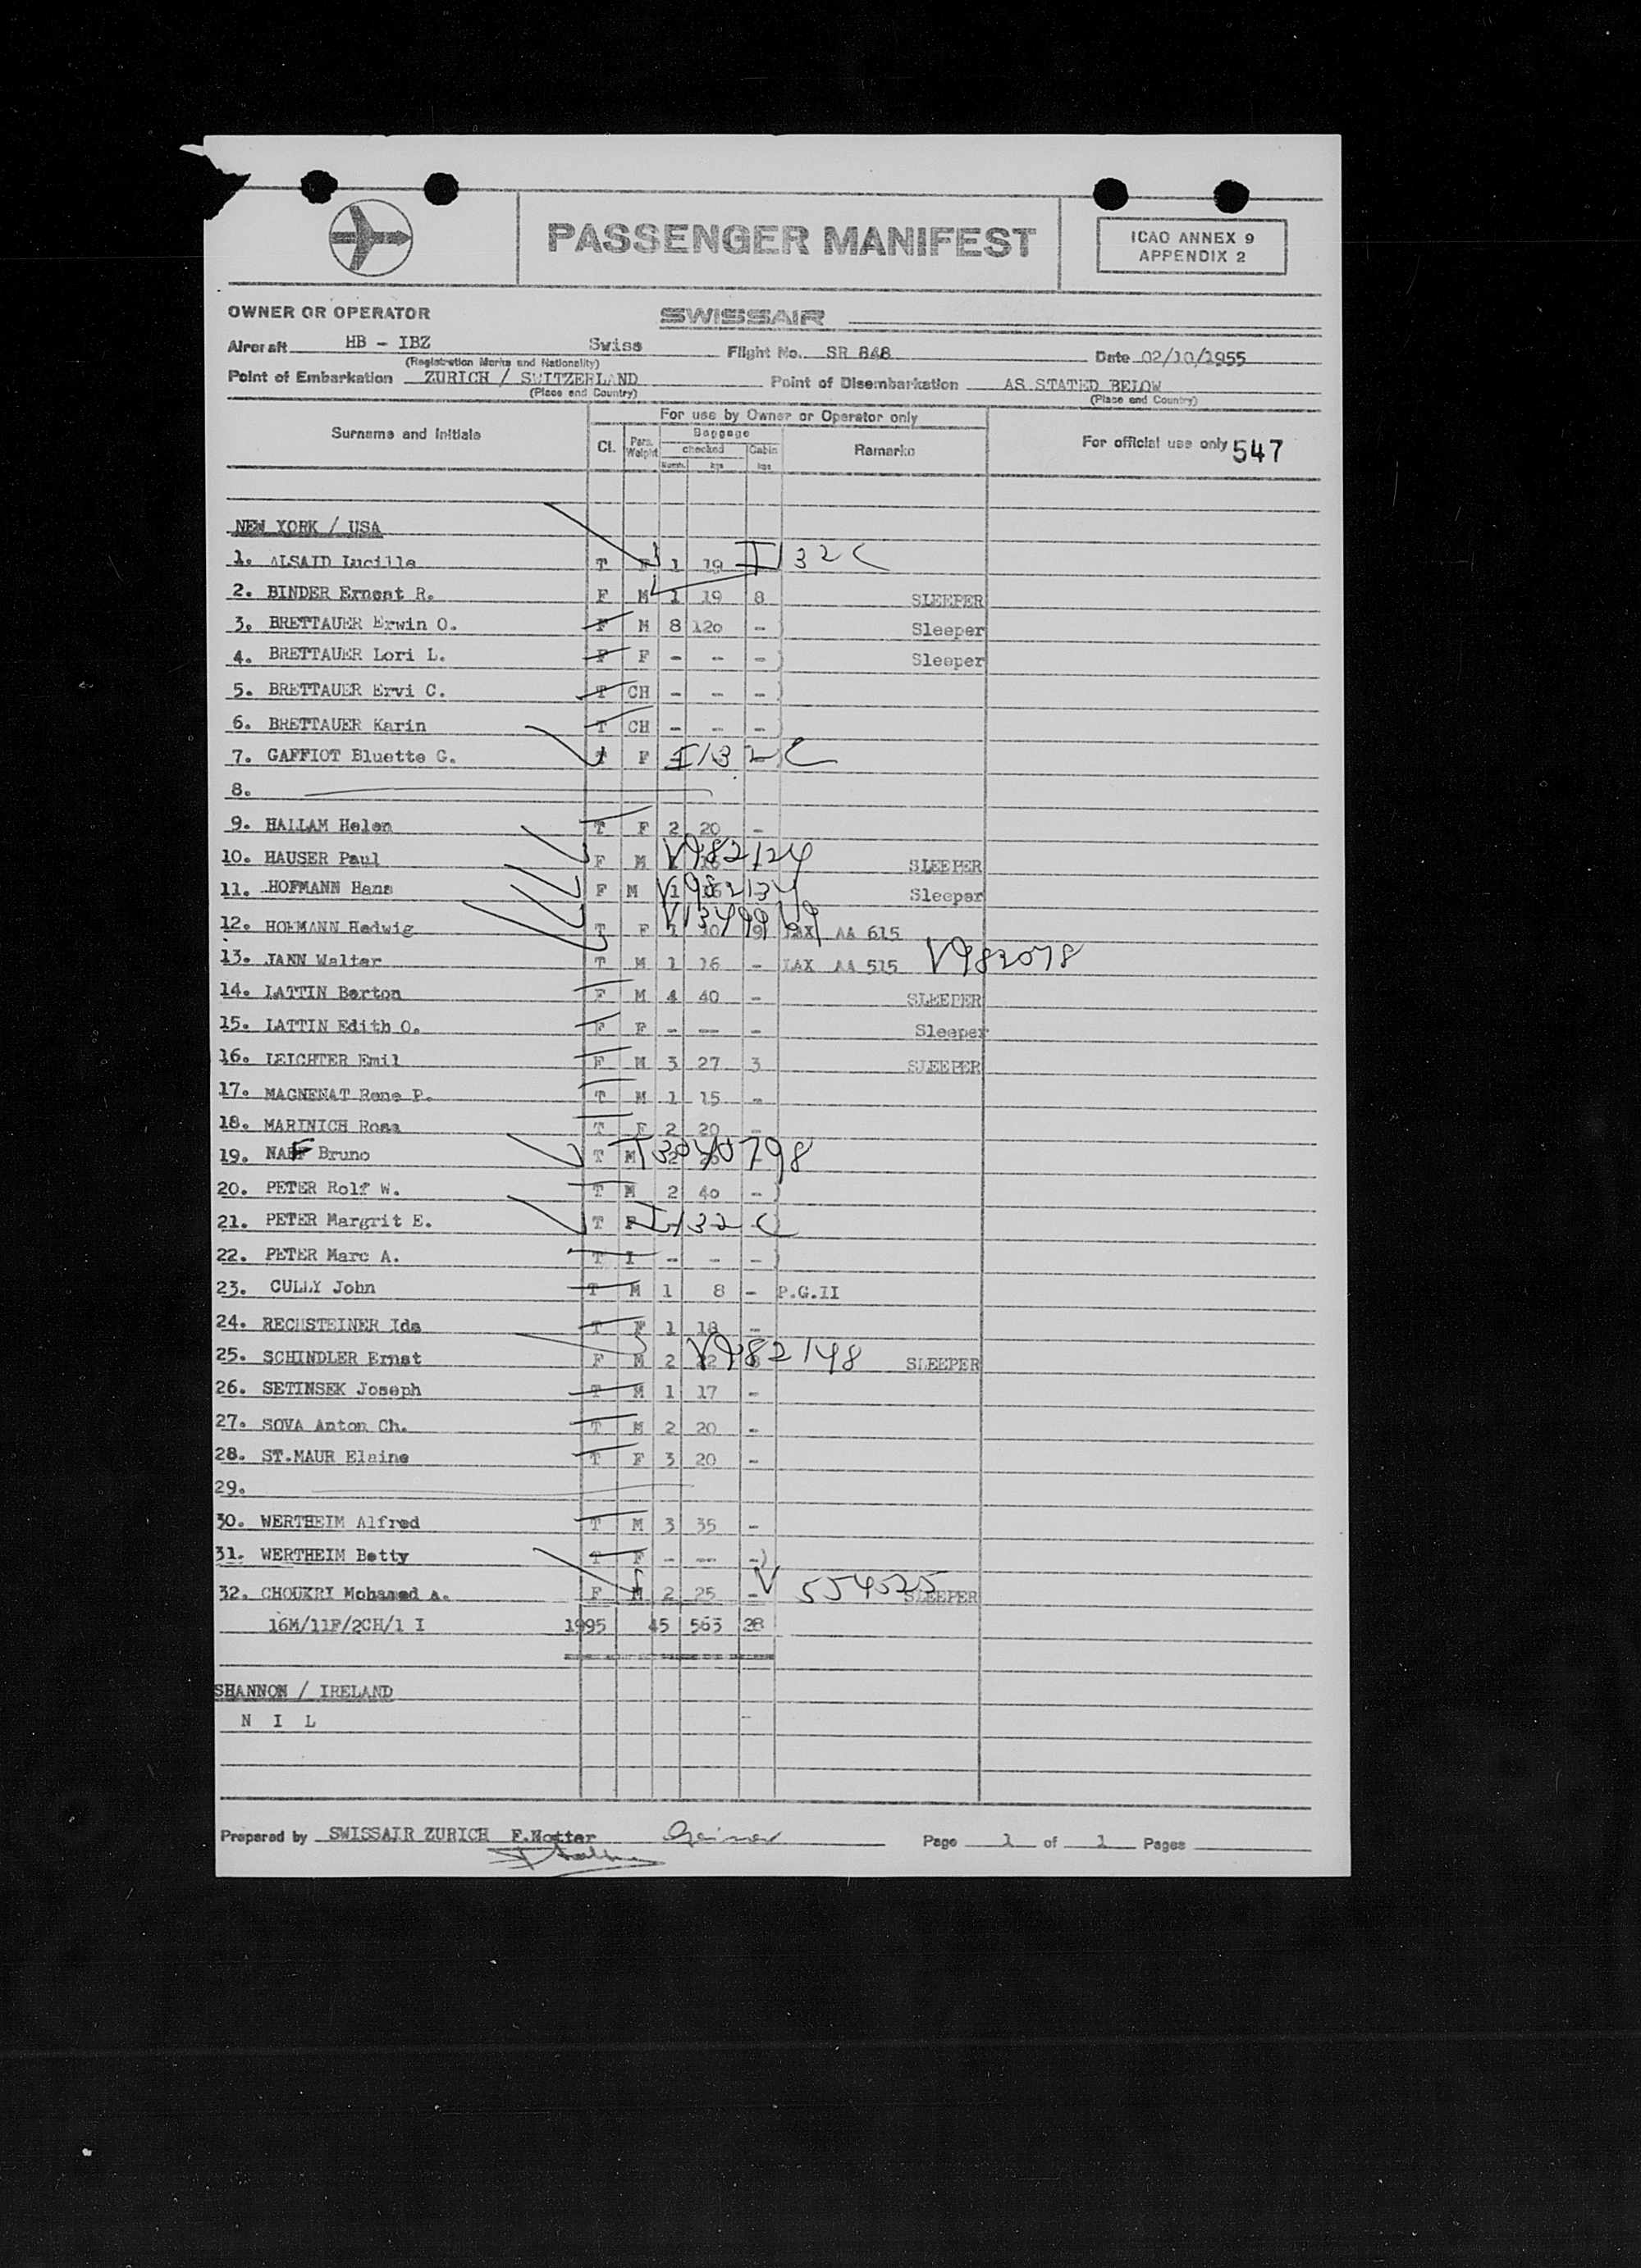 PASSENGER MANIFEST
ICAO ANNEX 9
APPENDIX 2
OWNER OR OPERATOR SWISSAIR
Aircraft HB - IBZ Swiss Flight No. SR 848 Date 02/10/1955
(Registration Marks and Nationality)
Point of Embarkation ZURICH / SWITZERLAND Point of Disembarkation AS STATED BELOW
(Place and Country) (Place and Country)
For use by Owner or Operator only
Surname and initials Cl. Pass. Weight Baggage checked Numb. kgs Cabin kgs Remarks For official use only 547
NEW YORK / USA
1. ALSAID Lucille T F 1 19 I 132C
2. BINDER Ernest R. F M 1 19 8 SLEEPER
3. BRETTAUER Erwin O. F M 8 120 - Sleeper
4. BRETTAUER Lori L. F F - -- -) Sleeper
5. BRETTAUER Ervi C. T CH - -- -)
6. BRETTAUER Karin T CH - -- -)
7. GAFFIOT Bluette G. T F I132C
8.
9. HALLAM Helen T F 2 20 -
10. HAUSER Paul F M V982124 SLEEPER
11. HOFMANN Hans F M 1 V982134 Sleeper
12. HOFMANN Hedwig T F 1 10 9 LAX AA 615
13. JANN Walter T M 1 16 - LAX AA 515 V982078
14. LATTIN Berton F M 4 40 - SLEEPER
15. LATTIN Edith O. F F - --- - Sleeper
16. LEICHTER Emil F M 3 27 3 SLEEPER
17. MAGNENAT Rene P. T M 1 15 -
18. MARINICH Rosa T F 2 20 -
19. NAEF Bruno T M 2
20. PETER Rolf W. T M 2 40 -)
21. PETER Margrit E. T F I132C
22. PETER Marc A. T I -- - -)
23. CULLY John T M 1 8 - P.G.II
24. RECHSTEINER Ida T F 1 18 -
25. SCHINDLER Ernst F M 2 22 V982148 SLEEPER
26. SETINSEK Joseph T M 1 17 -
27. SOVA Anton Ch. T M 2 20 -
28. ST.MAUR Elaine T F 3 20 -
29.
30. WERTHEIM Alfred T M 3 35 -
31. WERTHEIM Betty T F - --- -)
32. CHOUKRI Mohamed A. F M 2 25 - V 554525 SLEEPER
16M/11F/2CH/1 I 1995 45 563 28
SHANNON / IRELAND
N I L
Prepared by SWISSAIR ZURICH F.Notter Page 1 of 1 Pages